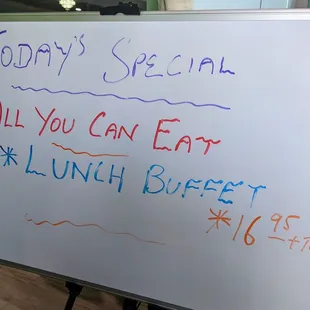 TODAY'S SPECIAL
ALL YOU CAN EAT
*LUNCH BUFFET
*16 95